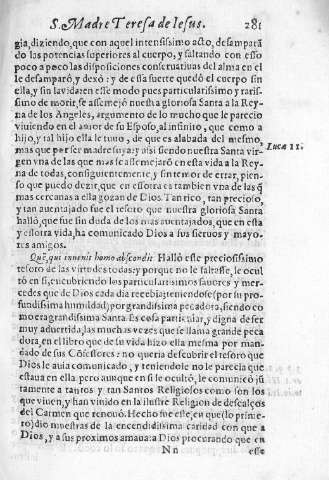 S. Madre Teresa de Iesus. 281
gia, diziendo, que con aquel intensissimo acto, desampará
do las potencias superiores al cuerpo, y saltando con esso
poco a poco las disposiciones conseruatiuas del alma en el
le desamparò, y dexò: y de essa suerte quedò el cuerpo sin
ella, y sin la vida: en esse modo pues particularissimo y raris-
simo de morir, se assemejò nuestra gloriosa Santa a la Rey-
na de los Angeles, argumento de lo mucho que le parecio
viuiendo en el amor de su Esposo, al infinito, que como a
hijo, y tal hijo ella le tuuo, de que es alabada del mesmo,
mas que por ser madre suya: y assi siendo nuestra Santa vir-
gen vna de las que mas se assemejarõ en esta vida a la Rey-
na de todas, consiguientemente, y sin temor de errar, pien-
so que puedo dezir, que en essotra es tambien vna de las q̃
mas cercanas a ella gozan de Dios. Tan rico, tan precioso,
y tan auentajado fue el tesoro que nuestra gloriosa Santa
hallò, que fue sin duda de los mas auentajados, que en esta
y essotra vida, ha comunicado Dios a sus sieruos y mayo-
res amigos.
Luca 11.
Quẽ, qui inuenit homo abscondit. Hallò este preciosissimo
tesoro de las virtudes todas: y porque no le faltasse, le ocul
tò en si, encubriendo los particularissimos fauores y mer-
cedes que de Dios cada dia recebia; teniendose (por su pro-
fundissima humildad) por grandissima pecadora, siendo co
mo era grandissima Santa. Es cosa particular, y digna de ser
muy aduertida, las muchas vezes que se llama grande peca
dora, en el libro que de su vida hizo ella mesma por man-
dado de sus Cõfessores: no queria descubrir el tesoro que
Dios le auia comunicado, y teniendole no le parecia que
estaua en ella, pero aunque en si le ocultò, le comunicò ju
tamente a tantos y tan Santos Religiosos como son los
que viuen, y han viuido en la ilustre Religion de descalços
del Carmen que renouò. Hecho fue este, en que (lo prime-
ro) dio muestras de la encendidissima caridad con que a
Dios, y a sus proximos amaua: a Dios procurando que en
N n esse